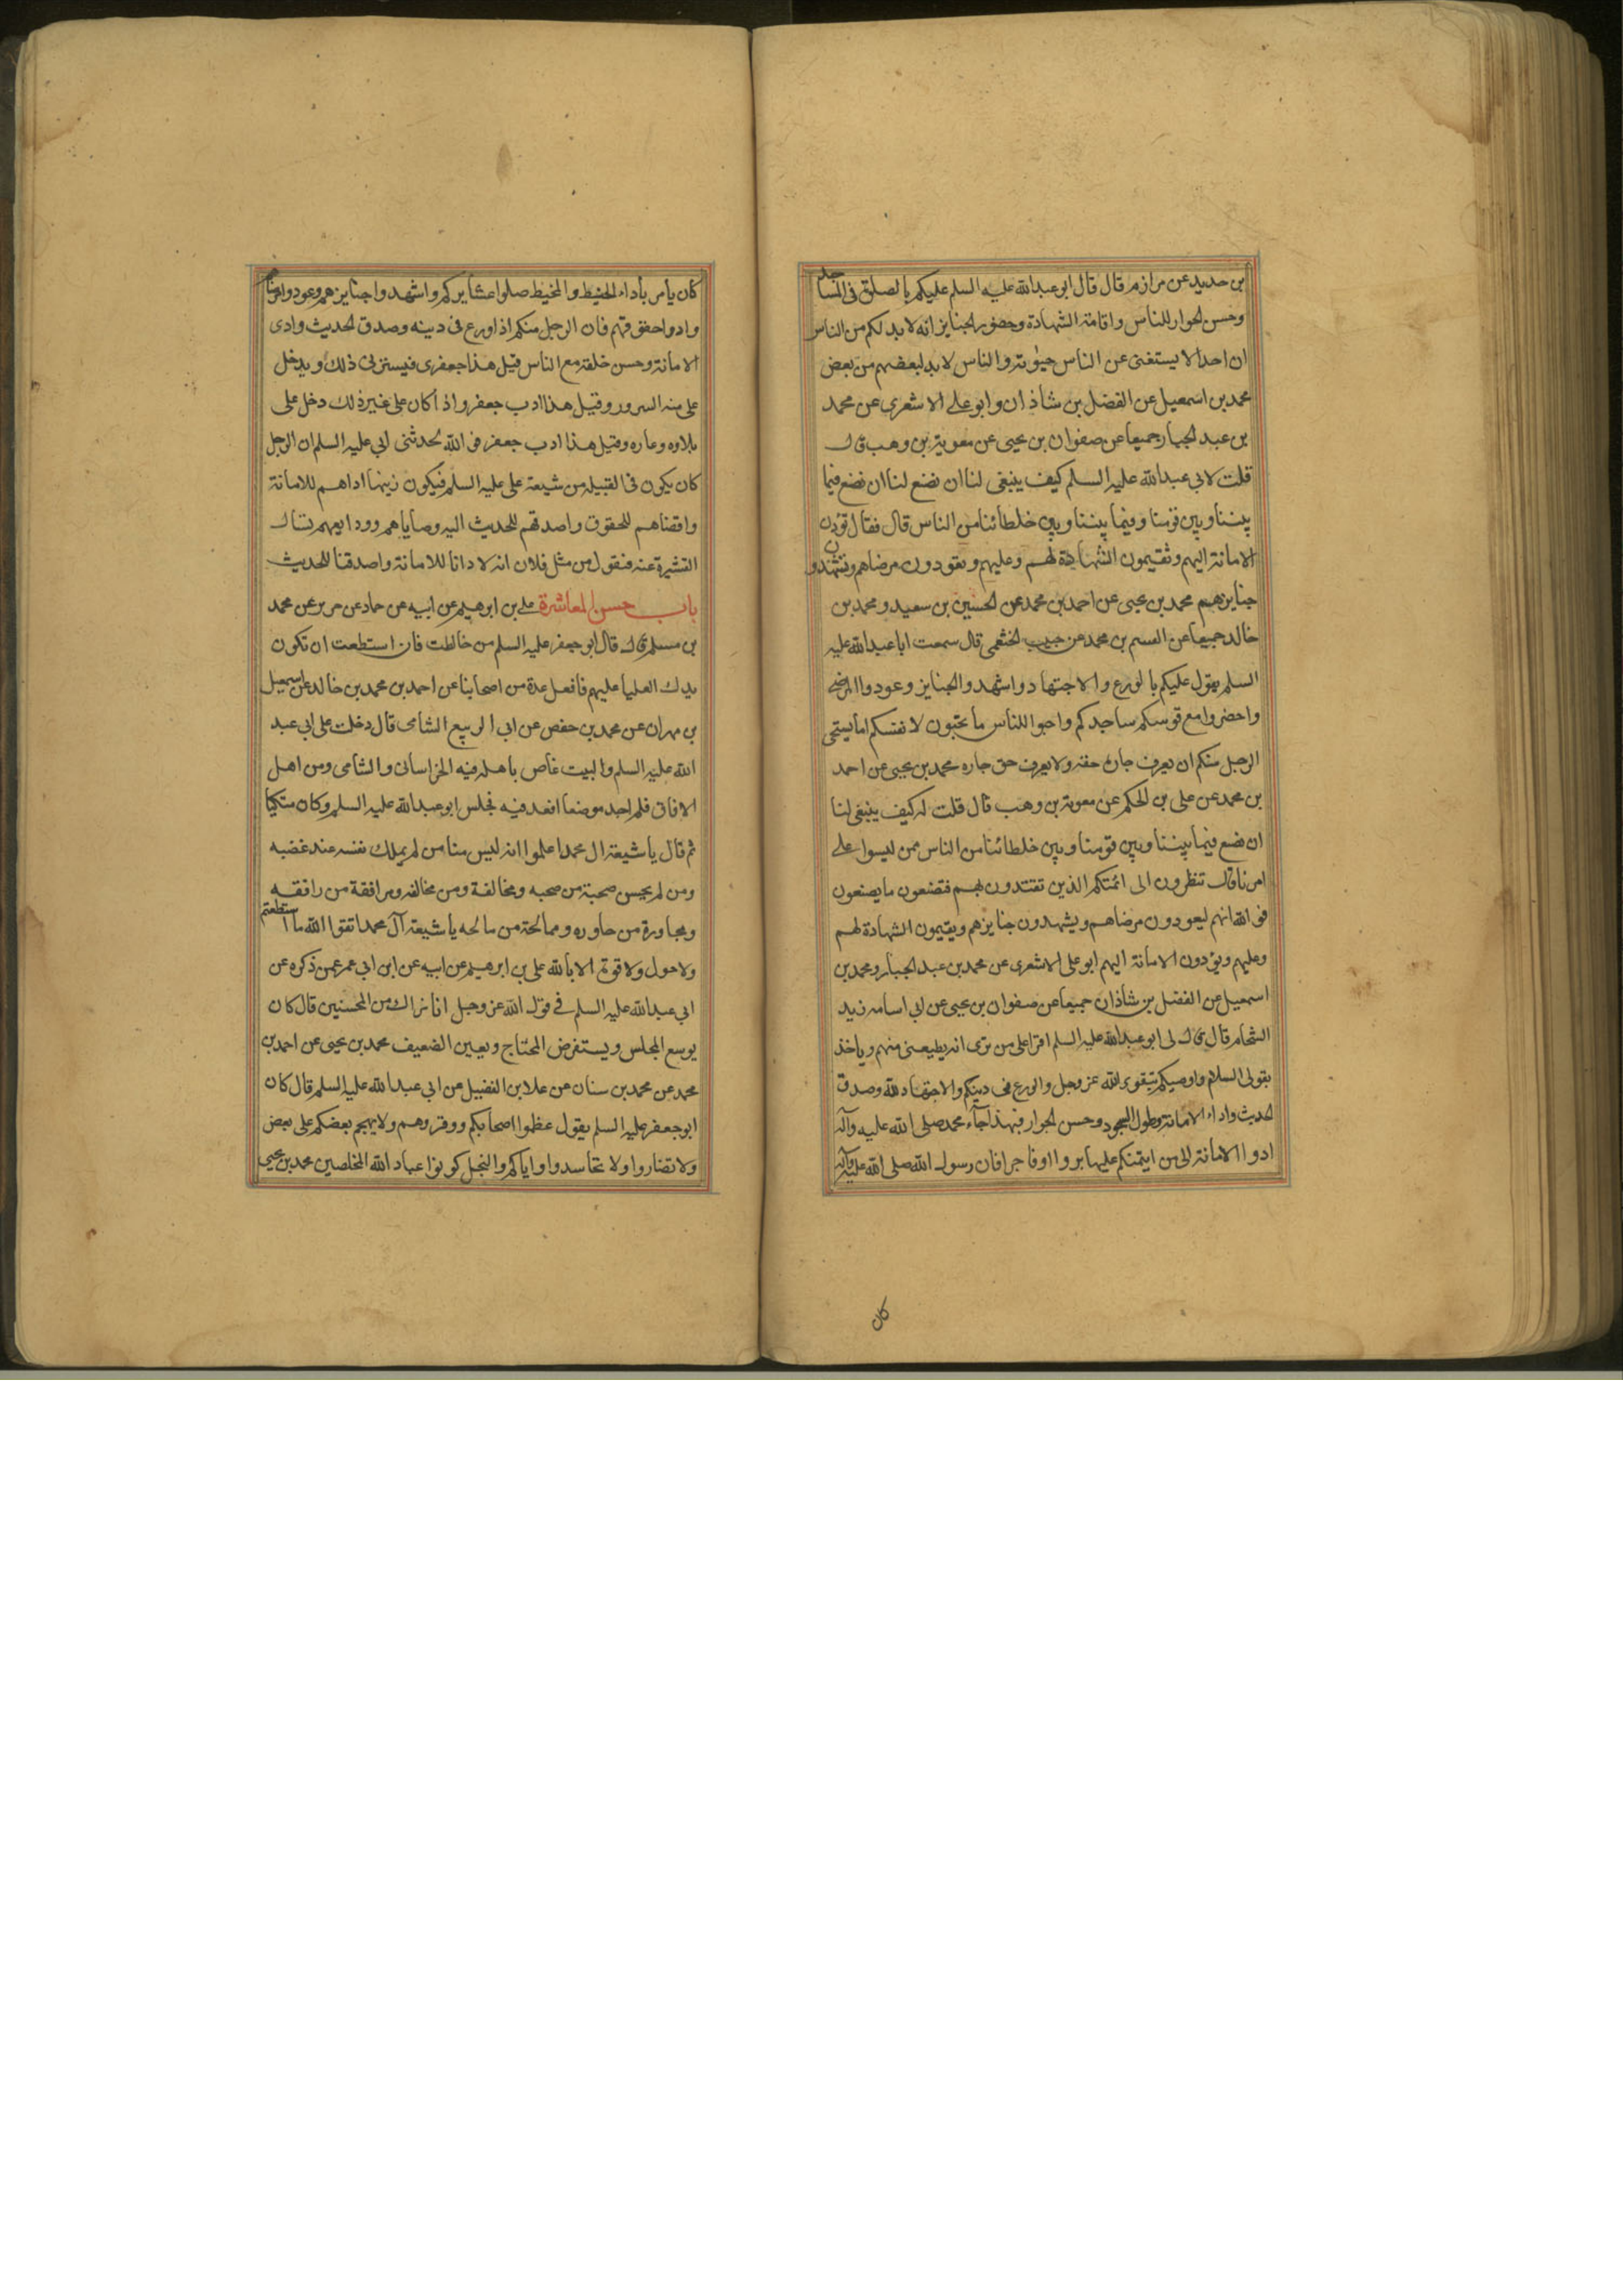 بن حديد عن مرازم قال قال ابو عبدالله عليه السلم عليكم بالصلوة فى المساجد
وحسن الجوار للناس واقامة الشهادة وحضور الجنايز انه لا بد لكم من الناس
ان احدا لا يستغنى عن الناس حيوته والناس لا بد لبعضهم من بعض
محمد بن اسمعيل عن الفضل بن شاذان وابو على الاشعرى عن محمد
بن عبد الجبار جميعا عن صفوان بن يحيى عن معوية بن وهب قال
قلت لابى عبدالله عليه السلم كيف ينبغى لنا ان نضع لنا ان نضع فيما
بيننا وبين قومنا وفيما بيننا وبين خلطائنا من الناس قال فقال تؤدون
الامانة اليهم وتقيمون الشهادة لهم وعليهم وتعودون مرضاهم وتشهدون
جنايزهم محمد بن يحيى عن احمد بن محمد عن الحسين بن سعيد ومحمد بن
خالد جميعا عن القسم بن محمد عن حبيب الخثعمى قال سمعت ابا عبدالله عليه
السلم يقول عليكم بالورع والاجتهاد واشهدوا الجنايز وعودوا المرضى
واحضروا مع قومكم مساجدكم واحبوا للناس ما تحبون لانفسكم اما يستحى
الرجل منكم ان يعرف جاره حقه ولا يعرف حق جاره محمد بن يحيى عن احمد
بن محمد عن على بن الحكم عن معوية بن وهب قال قلت له كيف ينبغى لنا
ان نضع فيما بيننا وبين قومنا وبين خلطائنا من الناس ممن ليسوا على
امرنا قال تنظرون الى ائمتكم الذين تقتدون بهم فتضعون ما يصنعون
فو الله انهم ليعودون مرضاهم ويشهدون جنايزهم ويقيمون الشهادة لهم
وعليهم ويؤدون الامانة اليهم ابو على الاشعرى عن محمد بن عبد الجبار ومحمد بن
اسمعيل عن الفضل بن شاذان جميعا عن صفوان بن يحيى عن ابى اسامه زيد
الشحام قال قال لى ابو عبدالله عليه السلم اقرا على من ترى انه يطيعنى منهم وياخذ
بقولى السلام واوصيكم بتقوى الله عز وجل والورع فى دينكم والاجتهاد لله وصدق
الحديث واداء الامانة وطول السجود وحسن الجوار فبهذا جآء محمد صلى الله عليه وآله
ادوا الامانة الى من ايتمنكم عليها بروا اوفاجرا فان رسول الله صلى الله عليه وآله
كان
كان يأمر بأداء الخيط والمخيط صلوا عشايركم واشهدوا جنايزهم وعودوا مرضاهم
وادوا حقوقهم فان الرجل منكم اذا ورع فى دينه وصدق الحديث وادى
الامانة وحسن خلقه مع الناس قيل هذا جعفرى فيسرنى ذلك ويدخل
على منه السرور وقيل هذا ادب جعفر واذا كان على غير ذلك دخل على
بلاوه وعاره وقيل هذا ادب جعفر فو الله لحدثنى ابى عليه السلم ان الرجل
كان يكون فى القبيله من شيعة على عليه السلم فيكون زينها اداهم للامانة
واقضاهم للحقوق واصدقهم للحديث اليه وصاياهم وودايعهم تسال
العشيرة عنه فتقول من مثل فلان انه لادانا للامانة واصدقنا للحديث
باب حسن المعاشرة على بن ابرهيم عن ابيه عن حماد عن حريز عن محمد
بن مسلم قال قال ابو جعفر عليه السلم من خالطت فان استطعت ان تكون
يدك العليا عليهم فافعل عدة من اصحابنا عن احمد بن محمد بن خالد عن اسمعيل
بن مهران عن محمد بن حفص عن ابى الربيع الشامى قال دخلت على ابى عبد
الله عليه السلم والبيت غاص باهله فيه الخراسانى والشامى ومن اهل
الافاق فلم اجد موضعا اقعد فيه فجلس ابو عبدالله عليه السلم وكان متكيا
ثم قال يا شيعة ال محمد اعلموا انه ليس منا من لم يملك نفسه عند غضبه
ومن لم يحسن صحبة من صحبه ومخالقة ومن مخالقه ومرافقة من رافقه
ومجاورة من جاوره وممالحة من مالحه يا شيعة آل محمد اتقوا الله ما استطعتم
ولا حول ولا قوة الا بالله على بن ابرهيم عن ابيه عن ابن ابى عمير عمن ذكره عن
ابى عبدالله عليه السلم فى قول الله عز وجل انا نراك من المحسنين قال كان
يوسع المجلس ويستقرض المحتاج ويعين الضعيف محمد بن يحيى عن احمد بن
محمد عن محمد بن سنان عن علا بن الفضيل عن ابى عبدالله عليه السلم قال كان
ابو جعفر عليه السلم يقول عظموا اصحابكم ووقروهم ولا يهجم بعضكم على بعض
ولا تضاروا ولا تحاسدوا واياكم والبخل كونوا عباد الله المخلصين محمد بن يحيى